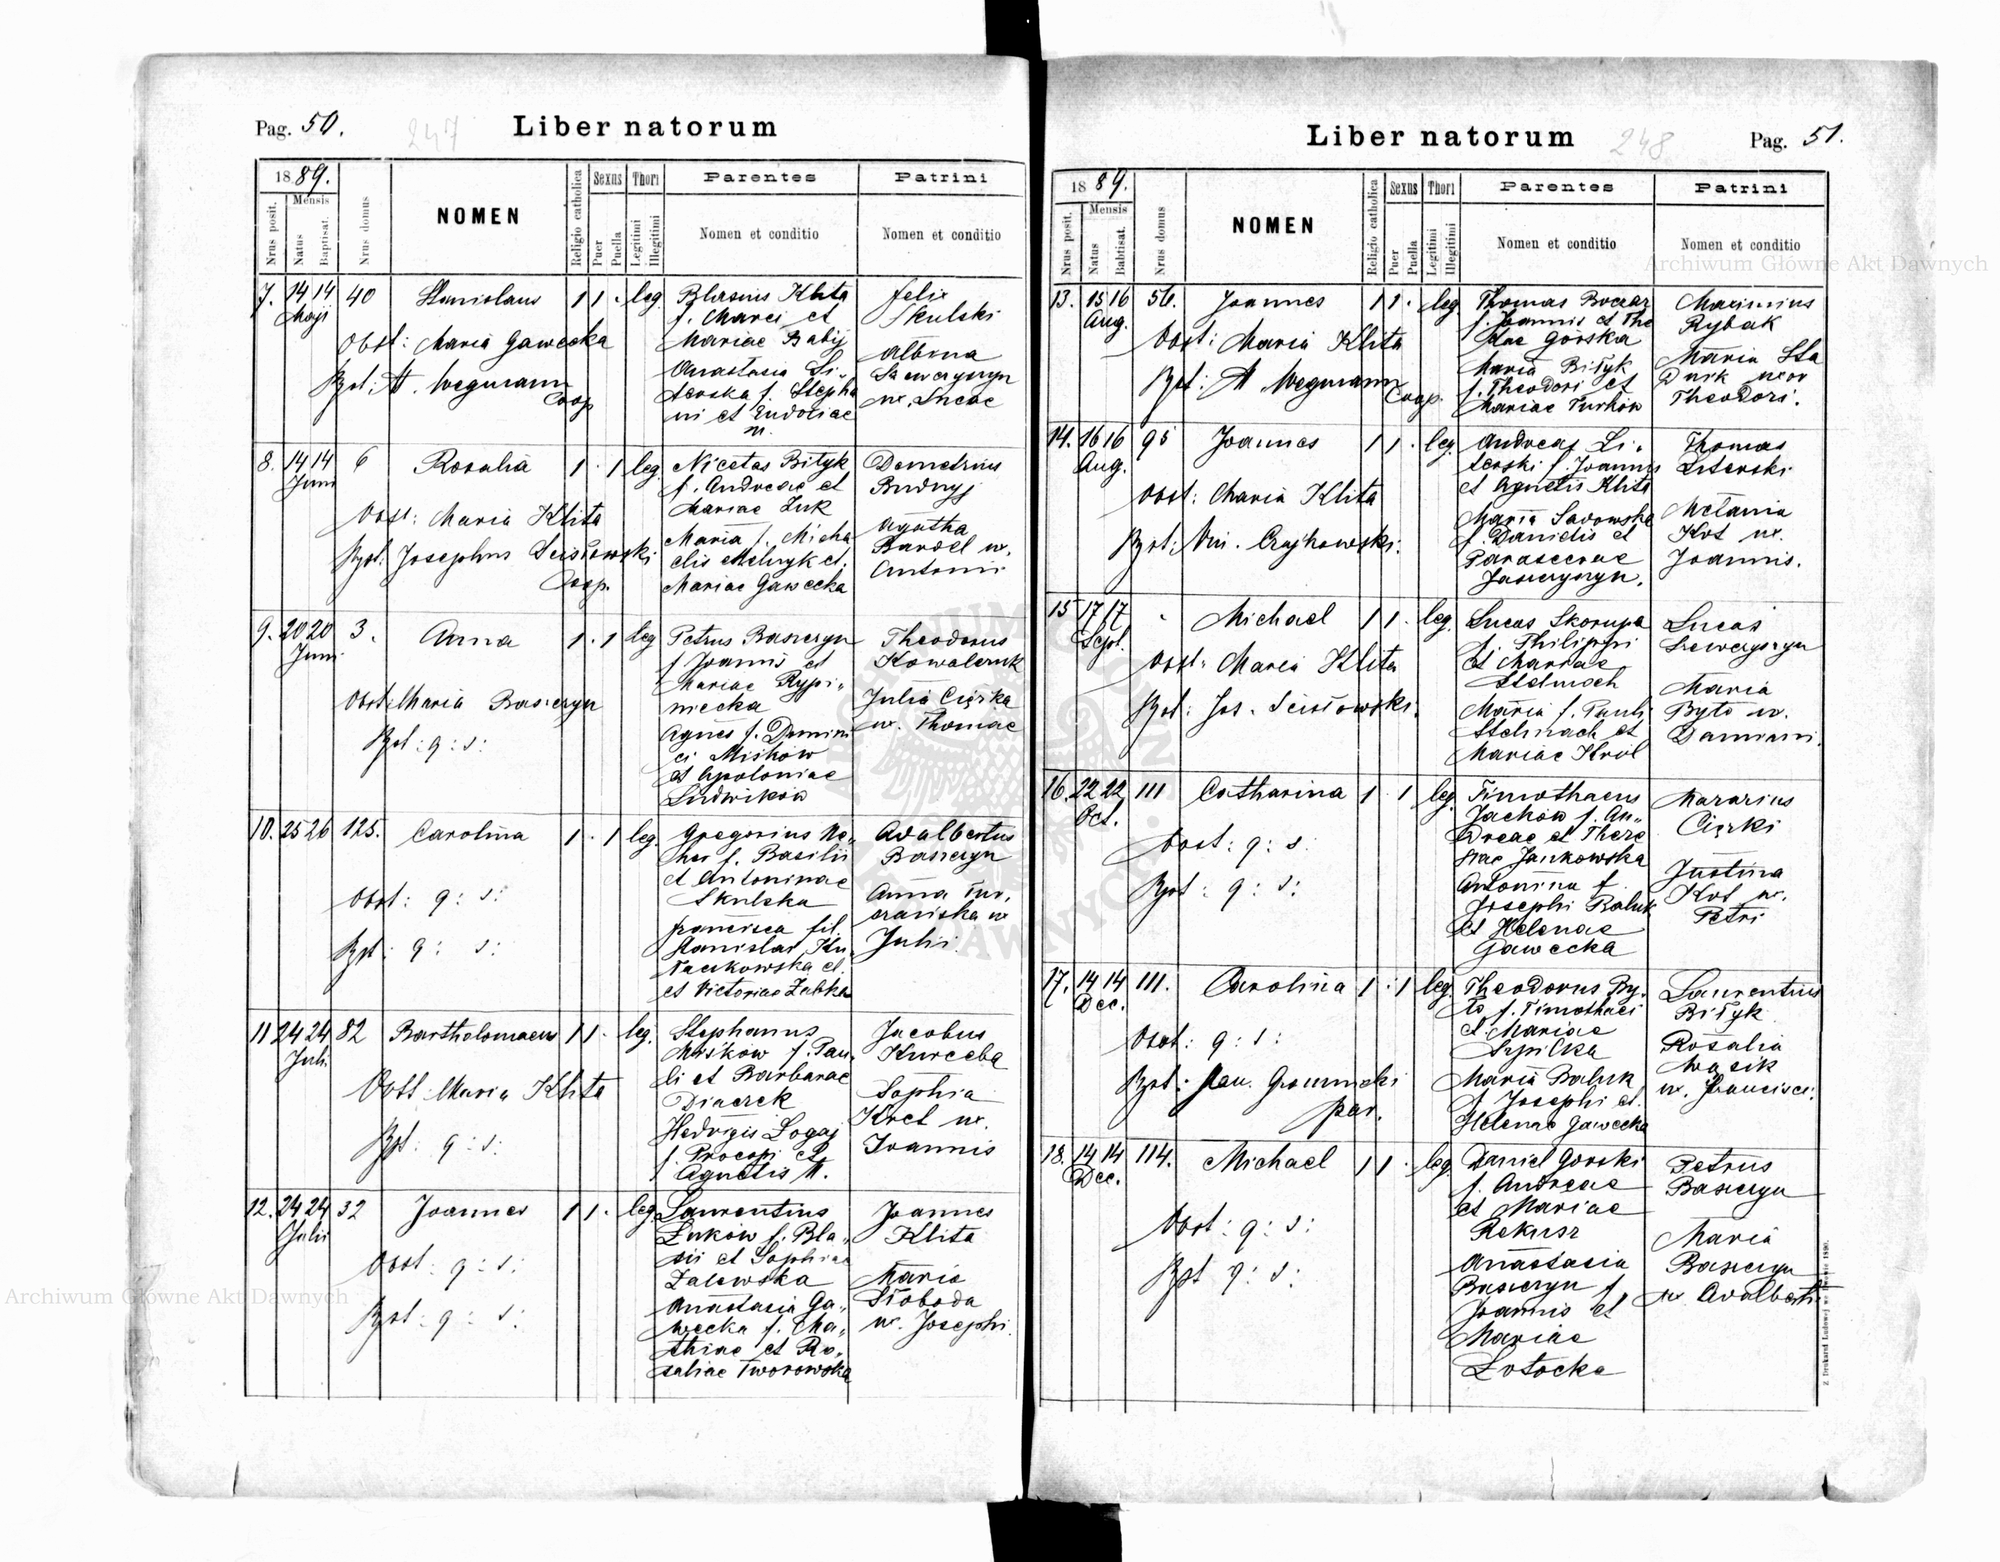 Pag. 50.
247
Liber natorum
1889.
Nrus posit.
Mensis
Natus
Baptisat.
Nrus domus
NOMEN
Religio catholica
Sexus
Puer
Puella
Thori
Legitimi
Illegitimi
Parentes
Nomen et conditio
Patrini
Nomen et conditio
7. 14 14 40 Stanislaus 1 1 · leg
Maji
Obst: Maria Gawecka
Bpt: A. Wegmann
Coop
Blasius Klita
f. Marci et
Mariae Babij
Anastasia Li-
terska f. Stepha
ni et Eudociae
Felix
Skulski
Albina
Seweryn
ux. Lucae
8. 14 14 6 Rosalia 1 · 1 leg
Juni
Obst: Maria Klita
Bpt: Josephus Scisłowski
Coop.
Nicetas Bityk
f. Andreae et
Mariae Żuk
Maria f. Micha
elis Melnyk et
Mariae Gawecka
Demetrius
Budnyj
Agatha
Bardel ux.
Antonii
9. 20 20 3. Anna 1 · 1 leg
Juni
Obst: Maria Baszczyn
Bpt: q: s:
Petrus Baszczyn
f. Joannis et
Mariae Rypi-
niecka
Agnes f. Domini
ci Miśków
et Apoloniae
Ludwików
Theodorus
Kowalczuk
Julia Ciężka
ux. Thomae
10. 25 26 125. Carolina 1 · 1 leg.
Obst: q: s:
Bpt: q: s:
Gregorius Ne-
her f. Basilii
et Antoninae
Skulska
Francisca fil.
Stanislai Ku
et Victoriae Żabka
Adalbertus
Baszczyn
Anna Tur-
czańska ux
Julii
11 24 24 82 Bartholomaeus 1 1 · leg.
Juli
Obst: Maria Klita
Bpt: q: s:
Stephanus
Miśków f. Pau-
li et Barbarae
Diaczek
Hedvigis Łogaj
f. Procopi et
Agnetis M.
Jacobus
Kurceba
Sophia
Kret ux.
Joannis
12. 24 24 32 Joannes 1 1 · leg
Julii
Obst: q: s:
Bpt: q: s:
Laurentius
Łuków f. Bla-
sii et Sophiae
Zalewska
Anastasia Ga-
wecka f. Ma-
thiae et Ro-
saliae Tworowska
Joannes
Klita
Maria
Słoboda
ux. Josephi.
Liber natorum
248
Pag. 51.
1889.
Nrus posit.
Mensis
Natus
Babtisat.
Nrus domus
NOMEN
Religio catholica
Sexus
Puer
Puella
Thori
Legitimi
Illegitimi
Parentes
Nomen et conditio
Patrini
Nomen et conditio
13. 15 16 56. Joannes 1 1 · leg
Aug.
Obst: Maria Klita
Bpt: A Wegmann
Coop.
Thomas
f. Joannis et The
clae Górska
Maria Bityk
f. Theodori et
Mariae Turków
Maximius
Rybak
Maria Sta
Duik uxor
Theodori.
14. 16 16 95 Joannes 1 1 · leg.
Aug.
Obst: Maria Klita
Bpt: Vin. Czajkowski.
Andreas Li-
terski f. Joannis
et Agnetis Klita
Maria Sadowska
f. Danielis et
Parascevae
Thomas
Literski
Melania
Kot ux.
Joannis.
15 17 17 - Michael 1 1 · leg.
Sept.
Obst: Maria Klita
Bpt: Jos. Scisłowski.
Lucas Skorupa
f. Philippi
et Mariae
Stelmach
Maria f. Pauli
Stelmach et
Mariae Król
Lucas
Maria
Byto ux.
Damiani.
16. 22 22 111 Catharina 1 · 1 leg
Oct.
Obst: q: s:
Bpt: q: s:
Timothaeus
Jachów f. An-
dreae et There
siae Jankowska
Antonina f.
Josephi Baluk
et Helenae
Gawecka
Macarius
Ciężki
Justina
Kot ux.
Petri
17. 14 14 111. Carolina 1 · 1 leg
Dec.
Obst: q: s:
Bpt:
par.
Theodorus By-
to f. Timothaei
et Mariae
Szpilka
Maria Baluk
f. Josephi et
Helenae Gawecka
Laurentius
Bityk
Rosalia
Wasik
ux. Francisci.
18. 14 14 114. Michael 1 1 · leg
Dec.
Obst: q: s:
Bpt q: s:
Daniel Górski
f. Andreae
et Mariae
Rekusz
Anastasia
Baszczyn f.
Joannis et
Mariae
Łotocka
Petrus
Baszczyn
Maria
Baszczyn
ux Adalberti
Archiwum Główne Akt Dawnych
Archiwum Główne Akt Dawnych